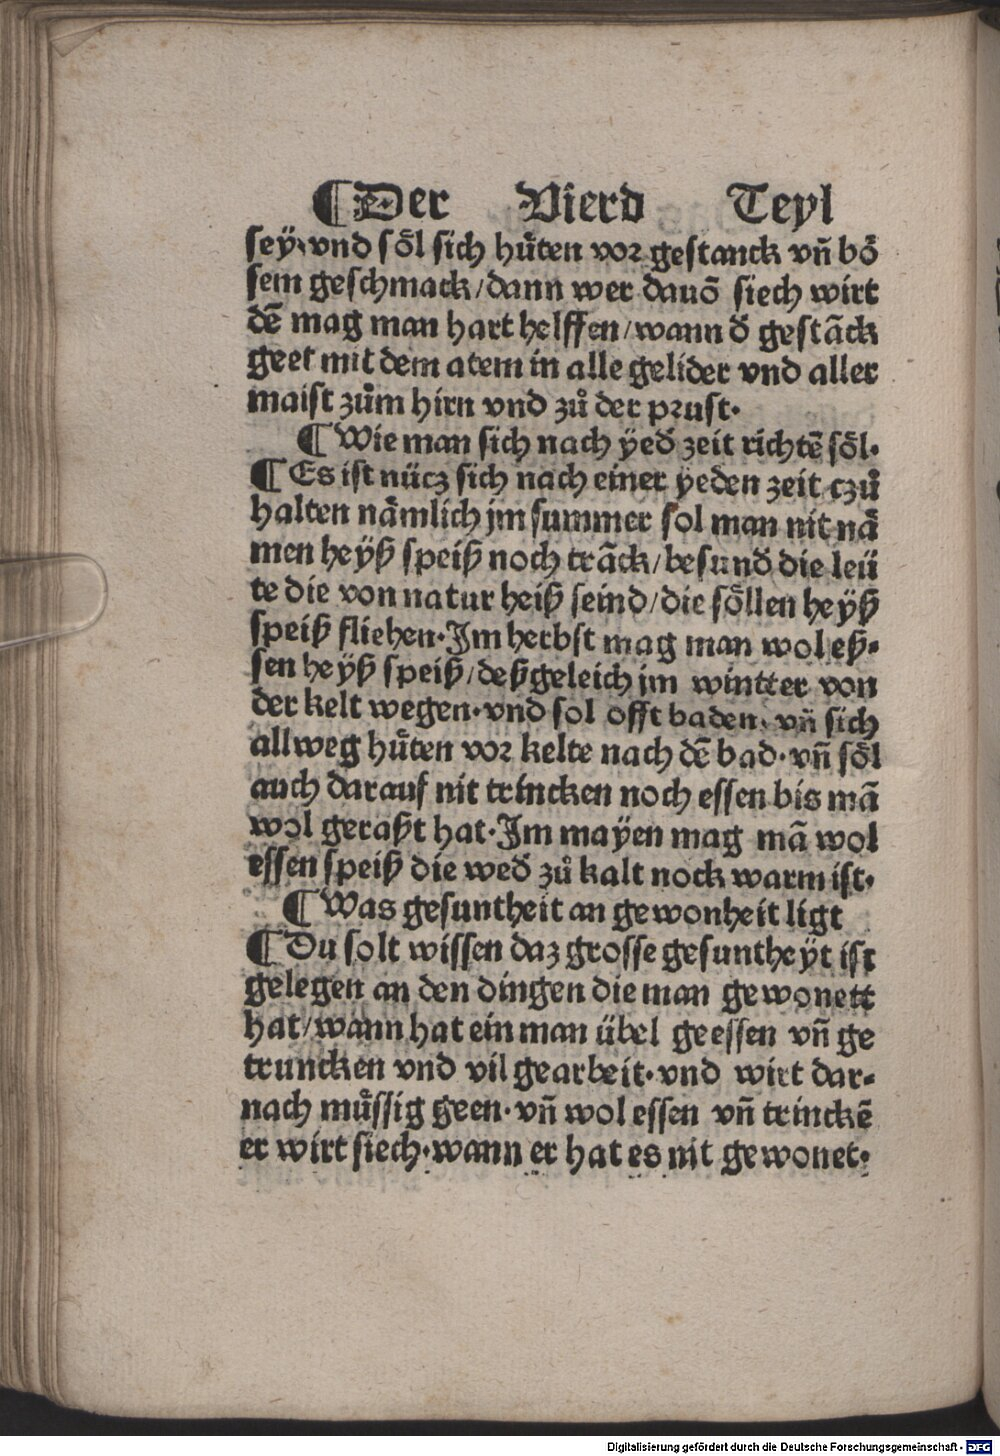 ¶Der Vierd Teyl
sey·vnd sol̈ sich huͤten vor gestanck vn̄ boͤ
sem geschmack/dann wer dauō siech wirt
dē mag man hart helffen/wann đ gestāck
geet mit dem atem in alle gelider vnd aller
maist zuͦm hirn vnd zuͦ der prust·
¶Wie man sich nach ÿeđ zeit richtē soͤl·
¶Es ist nücz sich nach einer yeden zeit czuͦ
halten naͤmlich jm summer sol man nit naͤ
men heÿß speiß noch trāck/besunđ die leü
te die von natur heiß seind/die soͤllen heÿß
speiß fliehen·Im herbst mag man wol eß⸗
sen heÿß speiß/deßgeleich jm wintter von
der kelt wegen·vnd sol offt baden·vn̄ sich
allweg huͤten vor kelte nach dē bad·vn̄ soͤl
auch darauf nit trincken noch essen bis mā
wol geraßt hat·Im maÿen mag mā wol
essen speiß die weđ zuͦ kalt nock warm ist·
¶Was gesuntheit an gewonheit ligt
¶Du solt wissen daz grosse gesuntheÿt ist
gelegen an den dingen die man gewonett
hat/wann hat ein man übel geessen vn̄ ge
truncken vnd vil gearbeit·vnd wirt dar⸗
nach muͤssig geen·vn̄ wol essen vn̄ trinckē
er wirt siech·wann er hat es nit gewonet·
Digitalisierung gefördert durch die Deutsche Forschungsgemeinschaft - DFG